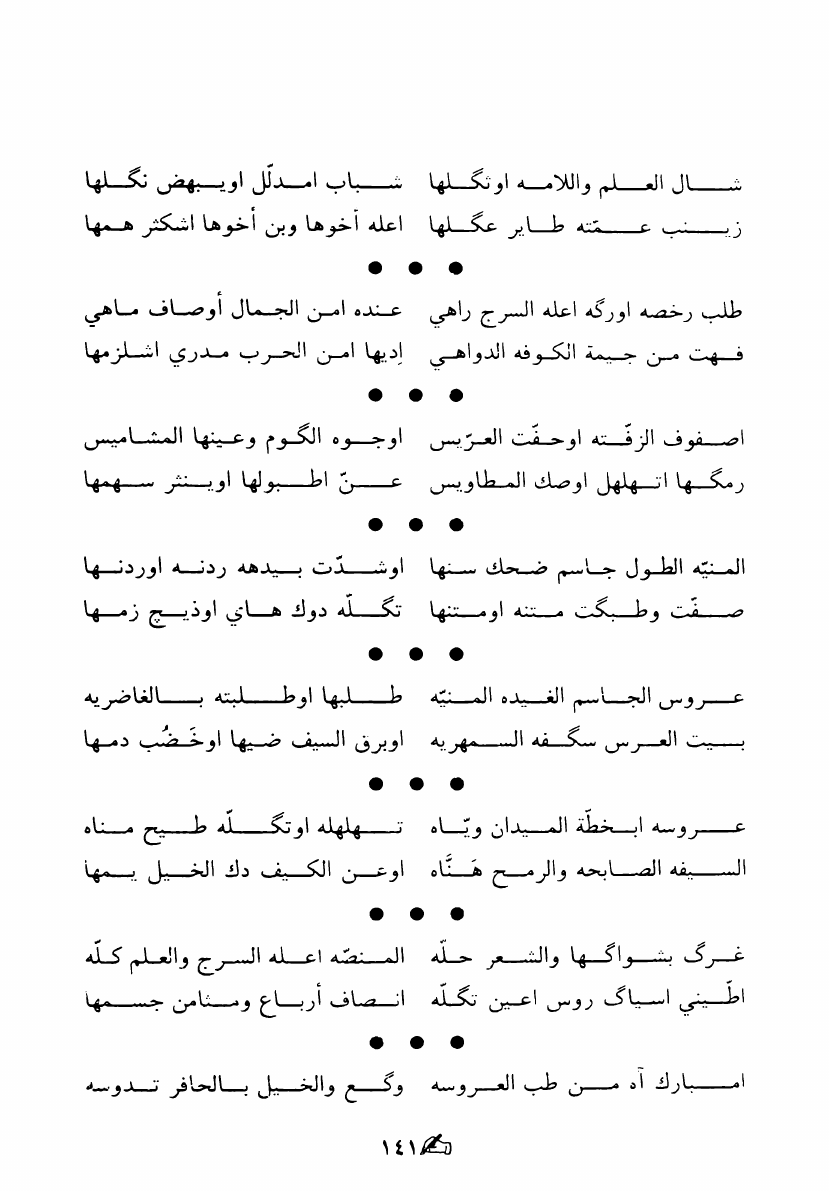 شال العلم واللامه اوثگلها شباب امدلّل اويبهض نگلها
زينب عمّته طاير عگلها اعله أخوها وبن أخوها اشكثر همها
● ● ●
طلب رخصه اورگه اعله السرج راهي عنده امن الجمال أوصاف ماهي
فهت من جيمة الكوفه الدواهي إديها امن الحرب مدري اشلزمها
● ● ●
اصفوف الزفّته اوحفّت العرّيس اوجوه الگوم وعينها المشاميس
رمگها اتهلهل اوصك المطاويس عنّ اطبولها اوينثر سهمها
● ● ●
المنيّه الطول جاسم ضحك سنها اوشدّت بيدهه ردنه اوردنها
صفّت وطبگت متنه اومتنها تگلّه دوك هاي اوذيچ زمها
● ● ●
عروس الجاسم الغيده المنيّه طلبها اوطلبته بالغاضريه
بيت العرس سگفه السمهريه اوبرق السيف ضيها اوخَضُب دمها
● ● ●
عروسه ابخطّة الميدان ويّاه تهلهله اوتگلّه طيح مناه
السيفه الصابحه والرمح هَنَّاه اوعن الكيف دك الخيل يمها
● ● ●
غرگ بشواگها والشعر حلّه المنصّه اعله السرج والعلم كلّه
اطّيني اسباگ روس اعين تگلّه انصاف أرباع ومثامن جسمها
● ● ●
امبارك آه من طب العروسه وگع والخيل بالحافر تدوسه
١٤١